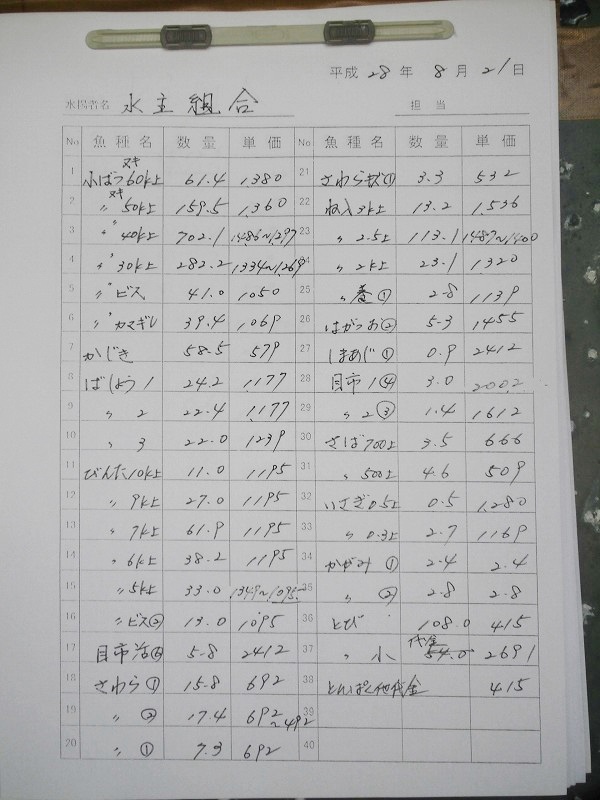 平成 28 年 8 月 21 日
水揚者名 水主組合 担当
No 魚種名 数量 単価 No 魚種名 数量 単価
1 ヌキ 小ばつ60k上 61.4 1,380 21 さわらキズ① 3.3 532
2 〃ヌキ 50k上 159.5 1,360 22 収入3k上 13.2 1,536
3 〃〃 40k上 702.1 1486~1,297 23 〃 2.5上 113.1 1487~1400
4 〃〃 30k上 282.2 1334~1,269 24 〃 2k上 23.1 1320
5 〃〃 ビス 41.0 1050 25 〃 巻① 2.8 1139
6 〃〃 カマギレ 39.4 1069 26 はがつお② 5.3 1455
7 かじき 58.5 579 27 しまあじ① 0.9 2412
8 ばしょう1 24.2 1,177 28 目市1④ 3.0 2002
9 〃 2 22.4 1,177 29 〃 2③ 1.4 1612
10 〃 3 22.0 1239 30 さば700上 3.5 666
11 びんた10k上 11.0 1195 31 〃 500上 4.6 509
12 〃 9k上 27.0 1195 32 いさぎ0.5上 0.5 1,280
13 〃 7k上 61.9 1195 33 〃 0.3上 2.7 1169
14 〃 6k上 38.2 1195 34 かがみ ① 2.4 2.4
15 〃 5k上 33.0 1349~1095 35 〃 ② 2.8 2.8
16 〃 ビス② 13.0 1095 36 とび 108.0 415
17 目市活 5.8 2412 37 〃 小 代金 54.0 2691
18 さわら① 15.8 692 38 とんぼ他代金 415
19 〃 ② 17.4 692~492 39
20 〃 ① 7.3 692 40